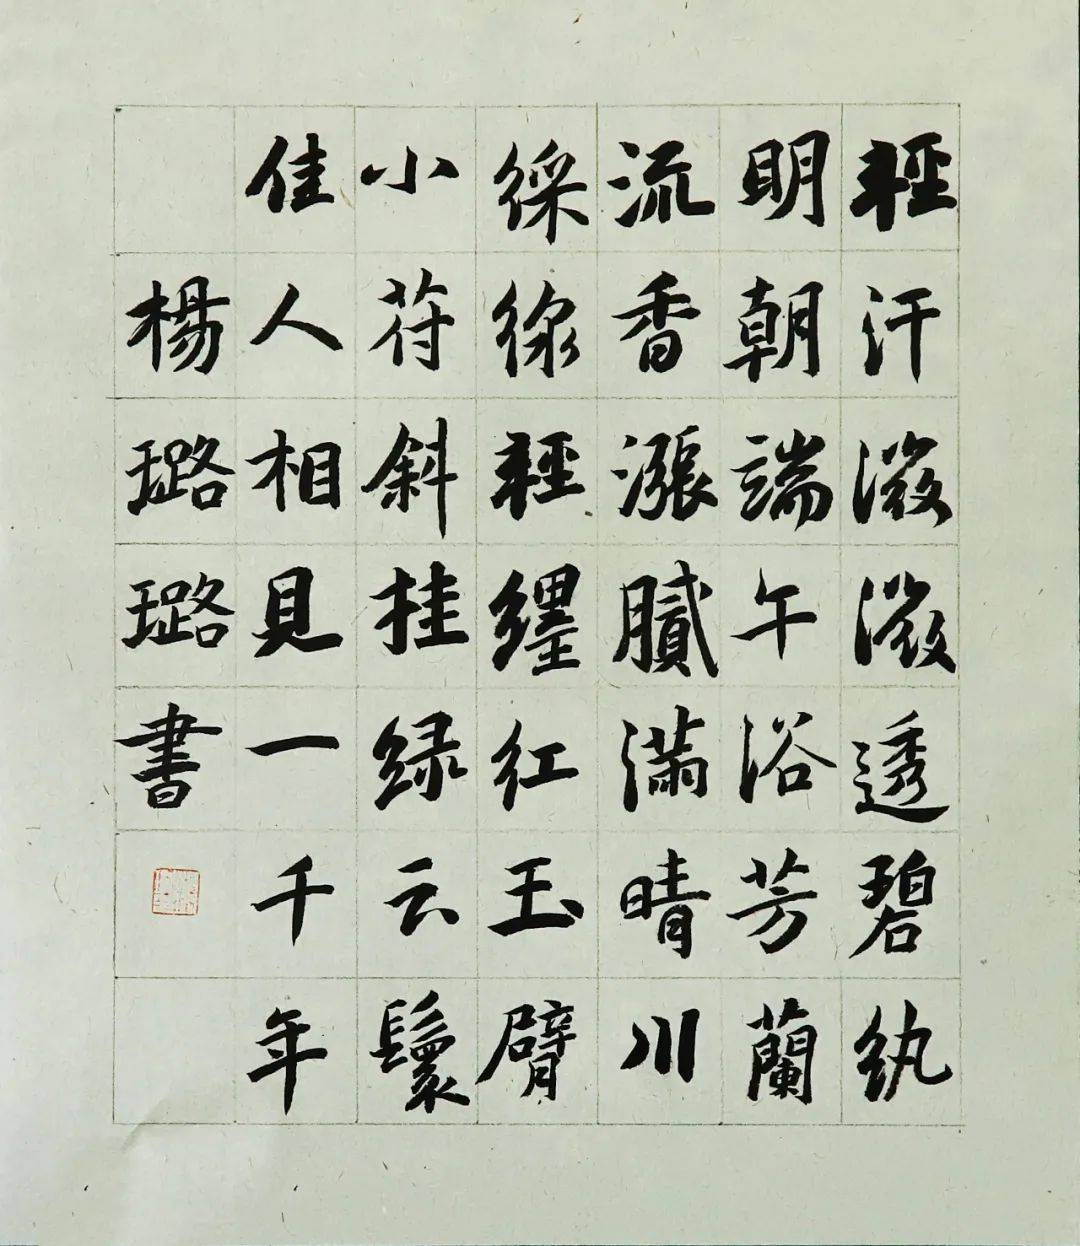 輕汗微微透碧紈
明朝端午浴芳蘭
流香漲膩滿晴川
綵線輕纏紅玉臂
小苻斜挂緑云鬟
佳人相見一千年
楊璐璐書